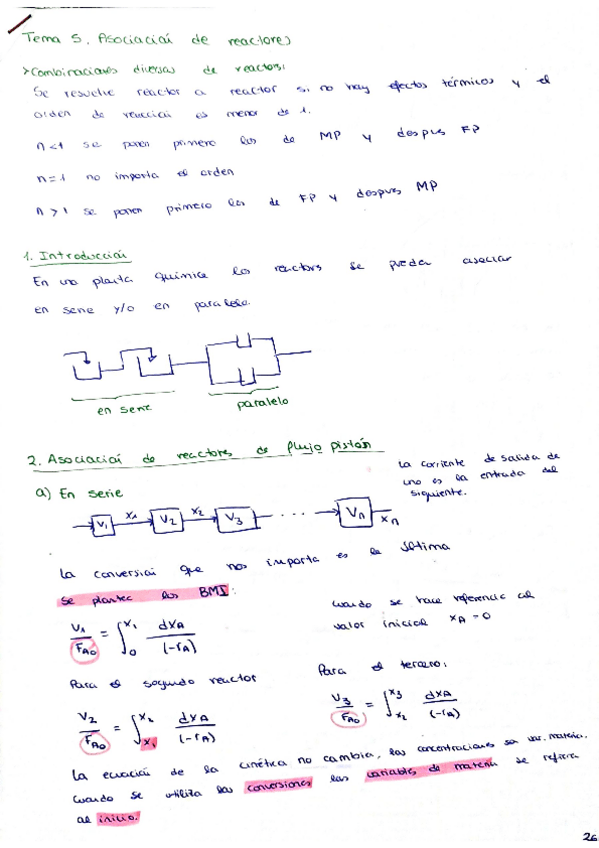 Tema 5. Asociación de reactores
>Combinaciones diversas de reactores:
Se resuelve reactor a reactor si no hay efectos térmicos y el
orden de reacción es menor de 1.
n<1 se ponen primero los de MP y despues FP
n=1 no importa el orden
n>1 se ponen primero los de FP y despues MP
1. Introducción
En una planta química los reactores se pueden asociar
en serie y/o en paralelo.
en serie
paralelo
2. Asociación de reactores de flujo pistón
a) En serie
La corriente de salida de
uno es la entrada del
siguiente.
V₁ x₁ V₂ x₂ V₃ ... Vn xn
La conversión que nos importa es la última
Se plantea los BMI:
V₁/FA₀ = ∫₀^x₁ dxA/(-rA)
cuando se hace referencia al
valor inicial xA=0
Para el segundo reactor
Para el tercero:
V₂/FA₀ = ∫x₁^x₂ dxA/(-rA)
V₃/FA₀ = ∫x₂^x₃ dxA/(-rA)
La ecuación de la cinética no cambia, las concentraciones son var. materia.
cuando se utiliza las conversiones las variables de materia se refieren
al inicio.
26